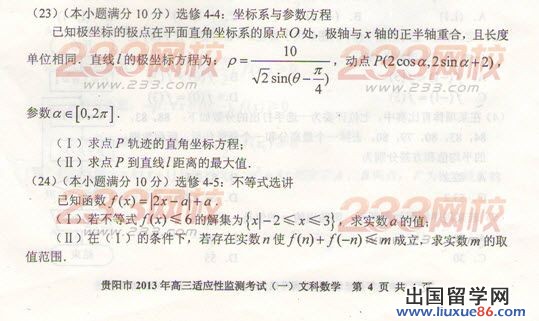 (23)(本小题满分 10 分)选修 4-4:坐标系与参数方程
已知极坐标的极点在平面直角坐标系的原点 O 处,极轴与 x 轴的正半轴重合,且长度
单位相同.直线 l 的极坐标方程为:ρ=10/(√2 sin(θ-π/4)),动点 P(2cosα,2sinα+2),
参数 α∈[0,2π].
(Ⅰ)求点 P 轨迹的直角坐标方程;
(Ⅱ)求点 P 到直线 l 距离的最大值.
(24)(本小题满分 10 分)选修 4-5:不等式选讲
已知函数 f(x)=|2x-a|+a.
(Ⅰ)若不等式 f(x)≤6 的解集为{x|-2≤x≤3},求实数 a 的值;
(Ⅱ)在(Ⅰ)的条件下,若存在实数 n 使 f(n)+f(-n)≤m 成立,求实数 m 的取
值范围.
贵阳市 2013 年高三适应性监测考试(一)文科数学 第 4 页 共
233网校
出国留学网
www.liuxue86.com